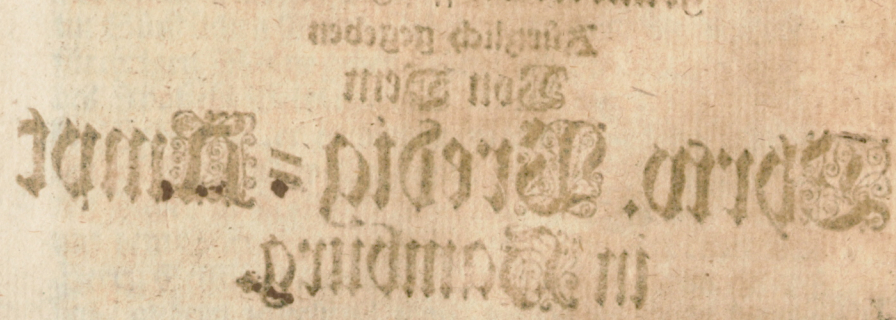 Kürtzlich gegeben
Von Dem
Ehrw. Predig = Ampt
in Hamburg.